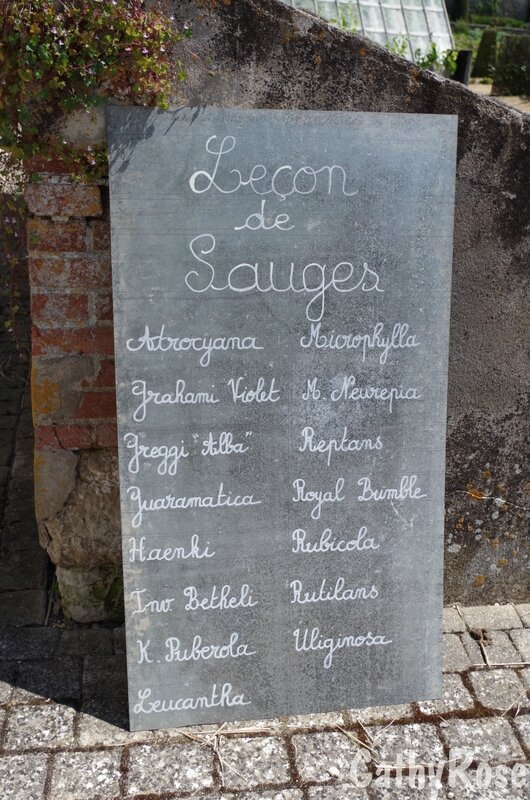 Leçon
de
Sauges
Atrocyana
Grahami Violet
Greggi "Alba"
Guaramatica
Haenki
Inv. Betheli
K. Puberola
Leucantha
Microphylla
M. Neurepia
Reptans
Royal Bumble
Rubicola
Rutilans
Uliginosa
CathyRose